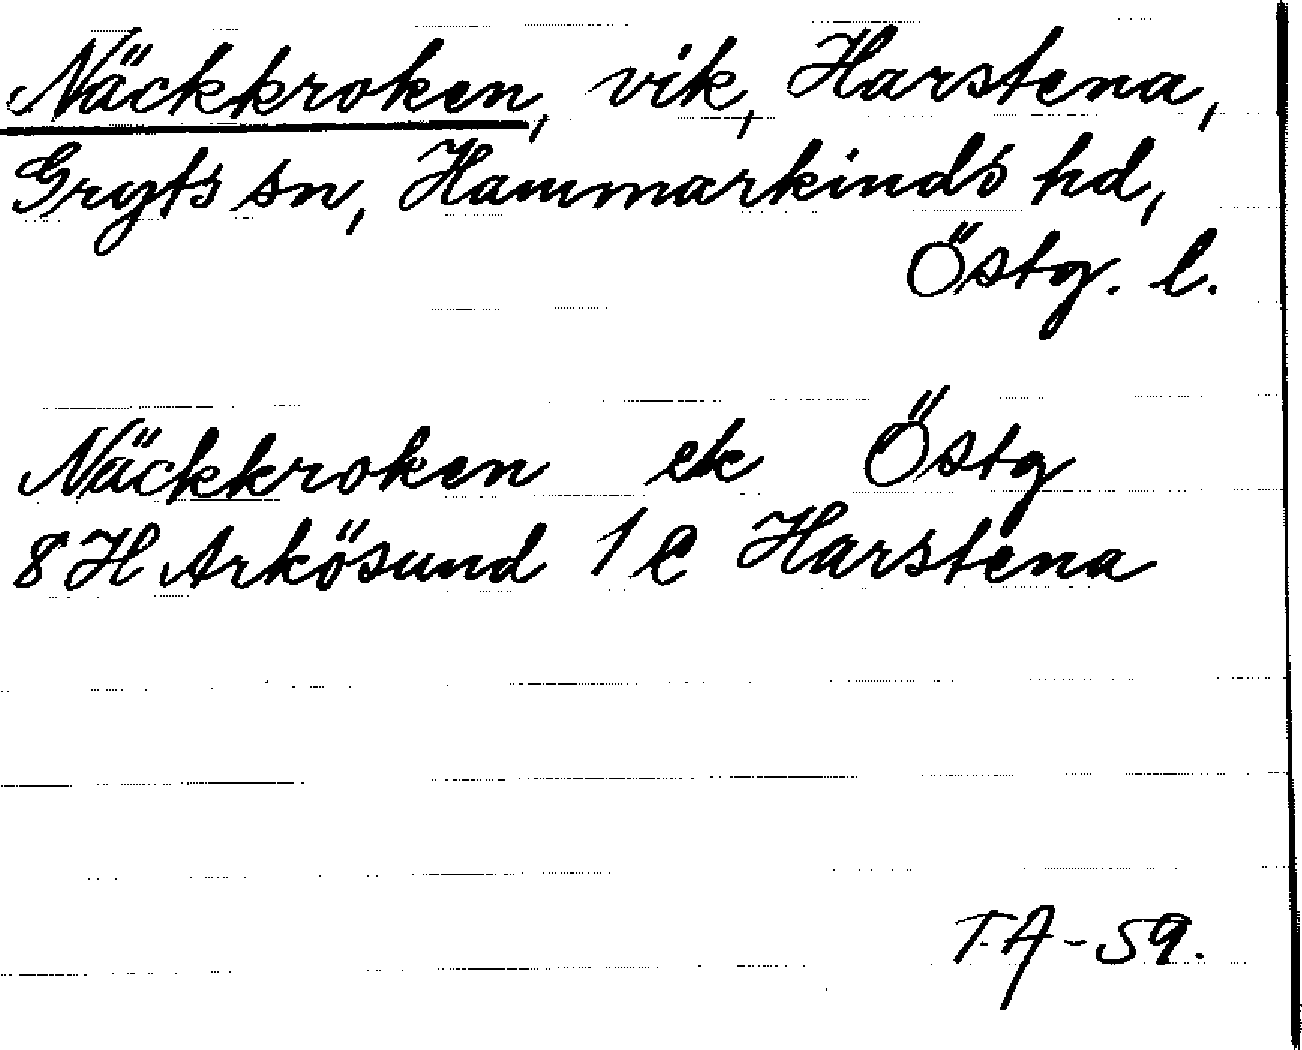 Näckkroken, vik, Harstena,
Gryts sn, Hammarkinds hd,
Östg. l.
Näckkroken ek Östg
8 H Arkösund 1 e Harstena
T.A-59.